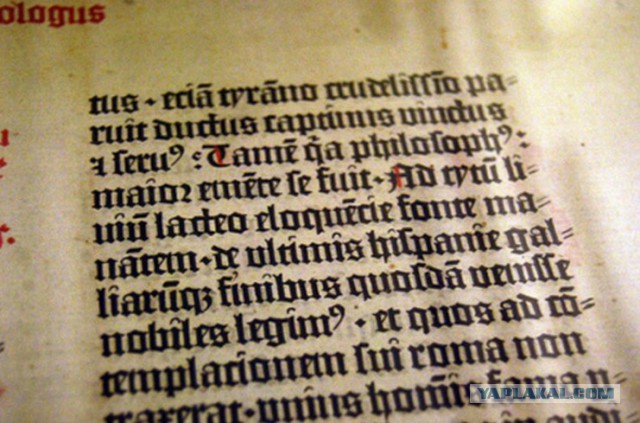 ologus
tus · eciā tyrāno crudelissīo pa⸗
ruit ductus captiuus vinctus
⁊ seruꝰ : Tamē q̄a philosophꝰ :
maior emēte se fuit · Ad tytū li⸗
uiū lacteo eloquēcie fonte ma⸗
nātem · de vltimis hispanie gal⸗
liarūqꝫ finibus quosdā venisse
nobiles legimꝰ · et quos ad cō⸗
templacionem sui roma non
traxerat · vnius homīs fama
YAPLAKAL.COM